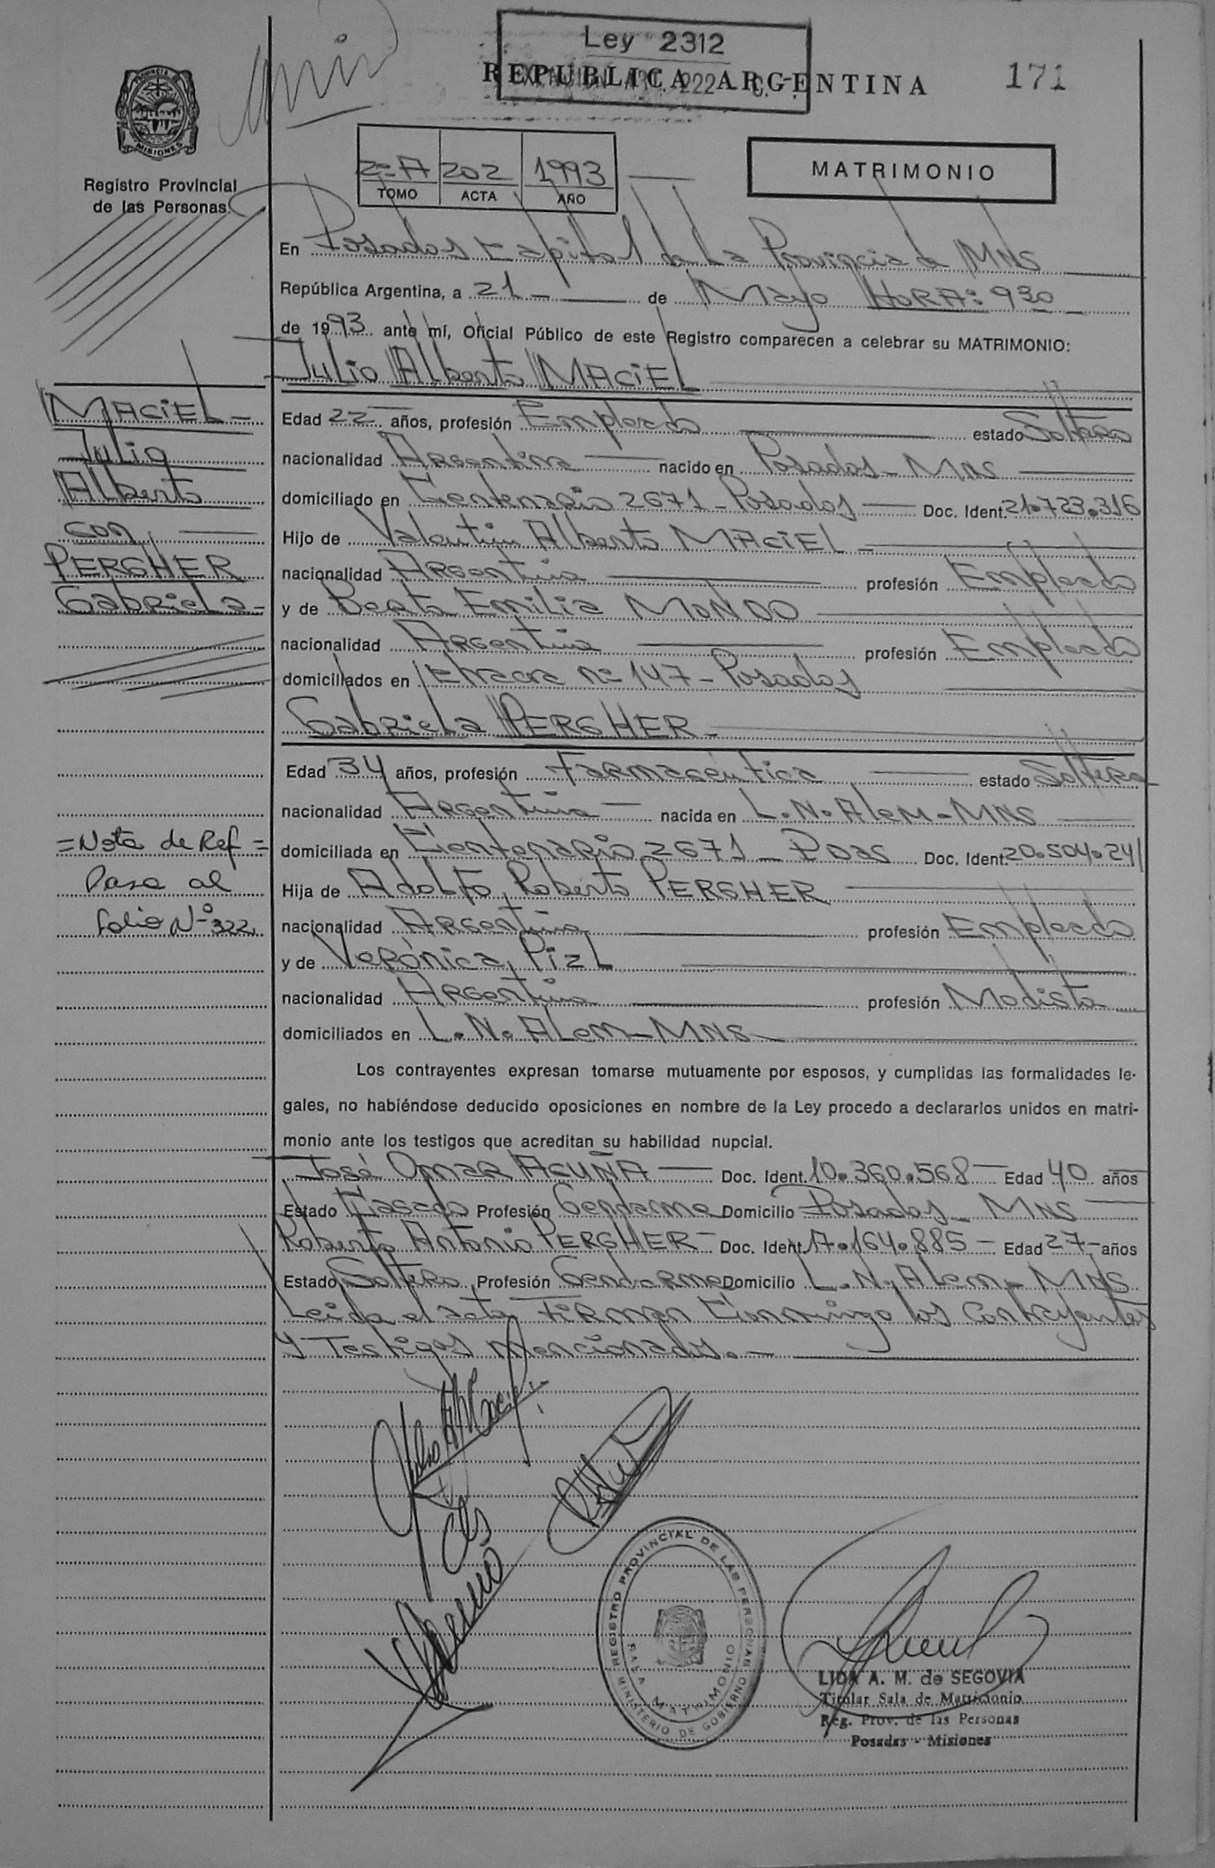 Ley 2312
REPUBLICA ARGENTINA
171
PROVINCIA DE
MISIONES
Registro Provincial
de las Personas
2=A 202 1993
TOMO ACTA AÑO
MATRIMONIO
En Posadas Capital de La Provincia de MNS
República Argentina, a 21 - de Mayo HORA: 930
de 1993 ante mí, Oficial Público de este Registro comparecen a celebrar su MATRIMONIO:
Julio Alberto MACIEL
MACIEL -
Julio
Alberto
con
PERGHER
Gabriela -
Edad 22 años, profesión Empleado estado Soltero
nacionalidad Argentina nacido en Posadas - MNS
domiciliado en Centenario 2671 - Posadas Doc. Ident. 21.723.316
Hijo de Valentin Alberto MACIEL -
nacionalidad Argentina profesión Empleado
y de Emilia MONDO
nacionalidad Argentina profesión Empleada
domiciliados en nº 147 - Posadas
Gabriela PERGHER -
Edad 34 años, profesión Farmacéutica estado Soltera
nacionalidad Argentina nacida en L.N. Alem - MNS
domiciliada en Centenario 2671 - Pdas Doc. Ident. 20.504.241
= Nota de Ref =
Pasa al
folio Nº 322.
Hija de Adolfo Roberto PERGHER
nacionalidad Argentina profesión Empleado
y de Verónica Pizl
nacionalidad Argentina profesión Modista
domiciliados en L.N. Alem - MNS
Los contrayentes expresan tomarse mutuamente por esposos, y cumplidas las formalidades le-
gales, no habiéndose deducido oposiciones en nombre de la Ley procedo a declararlos unidos en matri-
monio ante los testigos que acreditan su habilidad nupcial.
José Omar ACUÑA Doc. Ident. 10.360.568 Edad 40 años
Estado Casado Profesión Gendarme Domicilio Posadas - MNS
Roberto Antonio PERGHER - Doc. Ident. 17.164.885 - Edad 27 - años
Estado Soltero Profesión Gendarme Domicilio L.N. Alem - MNS
Leida el acta Firman Conmigo los Contrayentes
y Testigos Mencionados. -
REGISTRO PROVINCIAL DE LAS PERSONAS
SALA MATRIMONIO
MINISTERIO DE GOBIERNO
LIDA A. M. de SEGOVIA
Titular Sala de Matrimonio
Reg. Prov. de las Personas
Posadas - Misiones